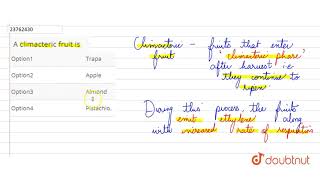 23762430
A climacteric fruit is
Option1 Trapa
Option2 Apple
Option3 Almond
Option4 Pistachio.
Climacteric - fruits that enter
fruit "climacteric phase"
after harvest i.e
they continue to
ripen.
During this process, the fruits
emit ethylene along
with increased rate of respiration
doubtnut